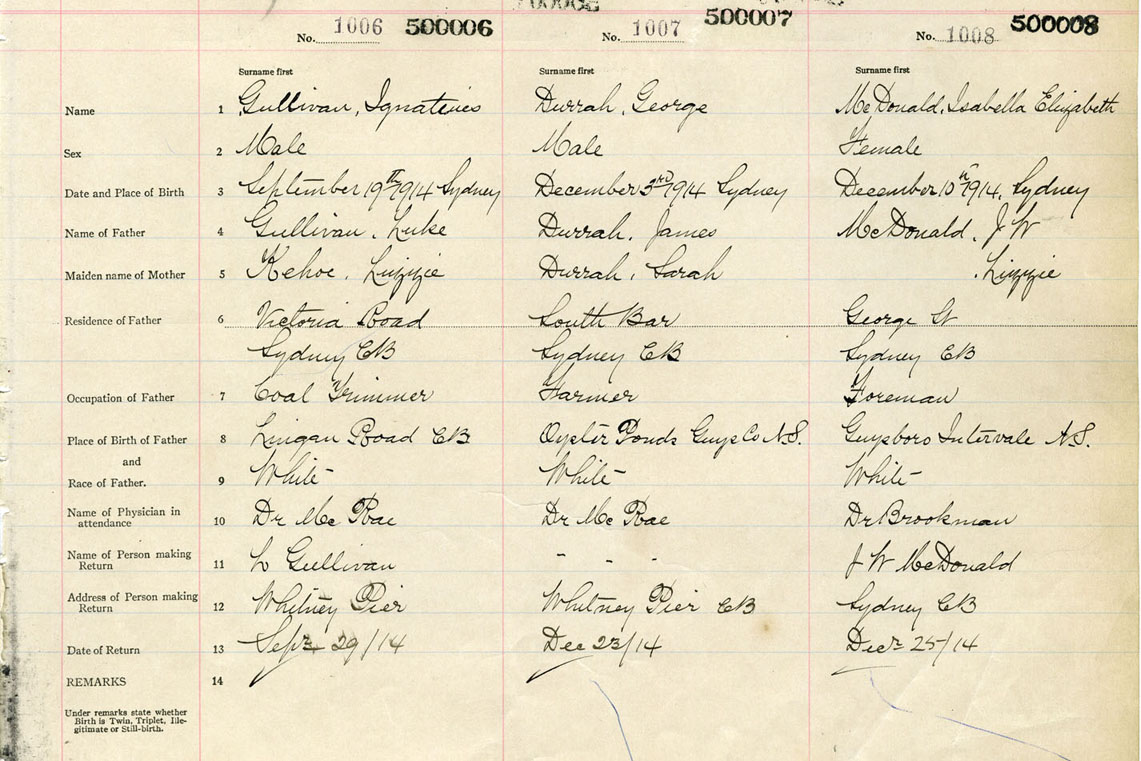 No. 1006 500006 No. 1007 500007 No. 1008 500008
Surname first Surname first Surname first
Name 1 Gullivan, Ignatius Durrah, George McDonald, Isabella Elizabeth
Sex 2 Male Male Female
Date and Place of Birth 3 September 19th 1914 Sydney December 3rd 1914 Sydney December 10th 1914, Sydney
Name of Father 4 Gullivan, Luke Durrah, James McDonald, J W
Maiden name of Mother 5 Kehoe, Lizzie Durrah, Sarah , Lizzie
Residence of Father 6 Victoria Road South Bar George St
Sydney CB Sydney CB Sydney CB
Occupation of Father 7 Coal Trimmer Farmer Foreman
Place of Birth of Father 8 Lingan Road CB Oyster Ponds Guys Co N.S. Guysboro Intervale N.S.
and
Race of Father. 9 White White White
Name of Physician in
attendance 10 Dr Mc Rae Dr Mc Rae Dr Brookman
Name of Person making
Return 11 L Gullivan " " " J W McDonald
Address of Person making
Return 12 Whitney Pier Whitney Pier CB Sydney CB
Date of Return 13 Sept 29/14 Dec 23/14 Decr 25/14
REMARKS 14
Under remarks state whether
Birth is Twin, Triplet, Ille-
gitimate or Still-birth.